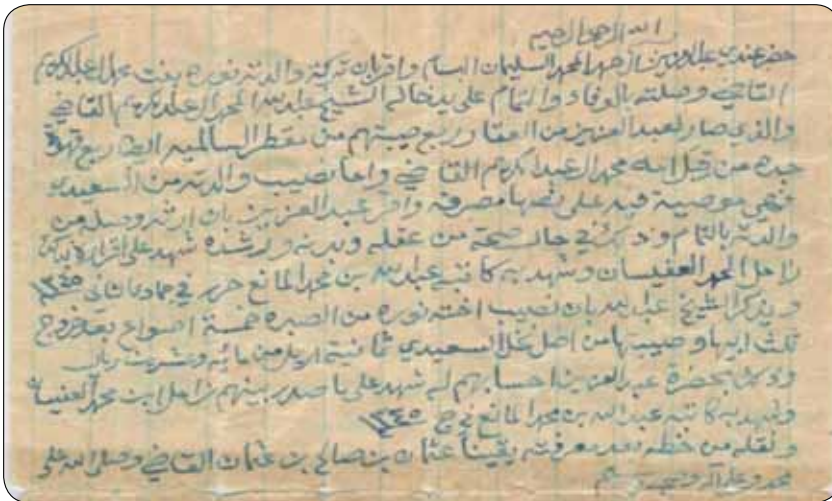 بسم الله الرحمن الرحيم
حضر عندي عبد العزيز الحمد المحمد السليمان البسام واقر بان تركة والدته نوره بنت محمد العبدالكريم
القاضي وصلته بالوفاء والتمام على يد خاله الشيخ عبدالله المحمد العبدالكريم القاضي
والذي صار لعبد العزيز من العقار ربع صيبتهم من مقطر السالميه ايضا ربع قهوة
جده من قبل امه محمد العبد الكريم القاضي واما نصيب والدته من السعيديه
فهي موصية فيه على نصها مصرفه واقر عبد العزيز بان ارثه وصله من
والدته بالتمام وذلك في حال صحته من عقله وبدنه ورشده شهد على اقراره بذلك
زامل المحمد العفيسان وشهد به كاتبه عبدالله بن محمد المانع حرر في جمادى الثاني ١٣٤٥
ويذكر الشيخ عبدالله بان نصيب اخته نوره من الصبره خمسة اصواع بعد خروج
ثلث ابيها وصيبتها من اصل نخل السعيدي ثمانية اريل من مائه وعشرين ريال
وذلك بحضرة عبد العزيز احسابهم له شهد على ما صدر بينهم زامل ابن محمد العفيسان
وشهد به كاتبه عبدالله بن محمد المانع في ج ١٣٤٥
ونقله من خطه بعد معرفته يقيناً عثمان بن صالح بن عثمان القاضي وصلى الله على
محمد وعلى آله وصحبه وسلم